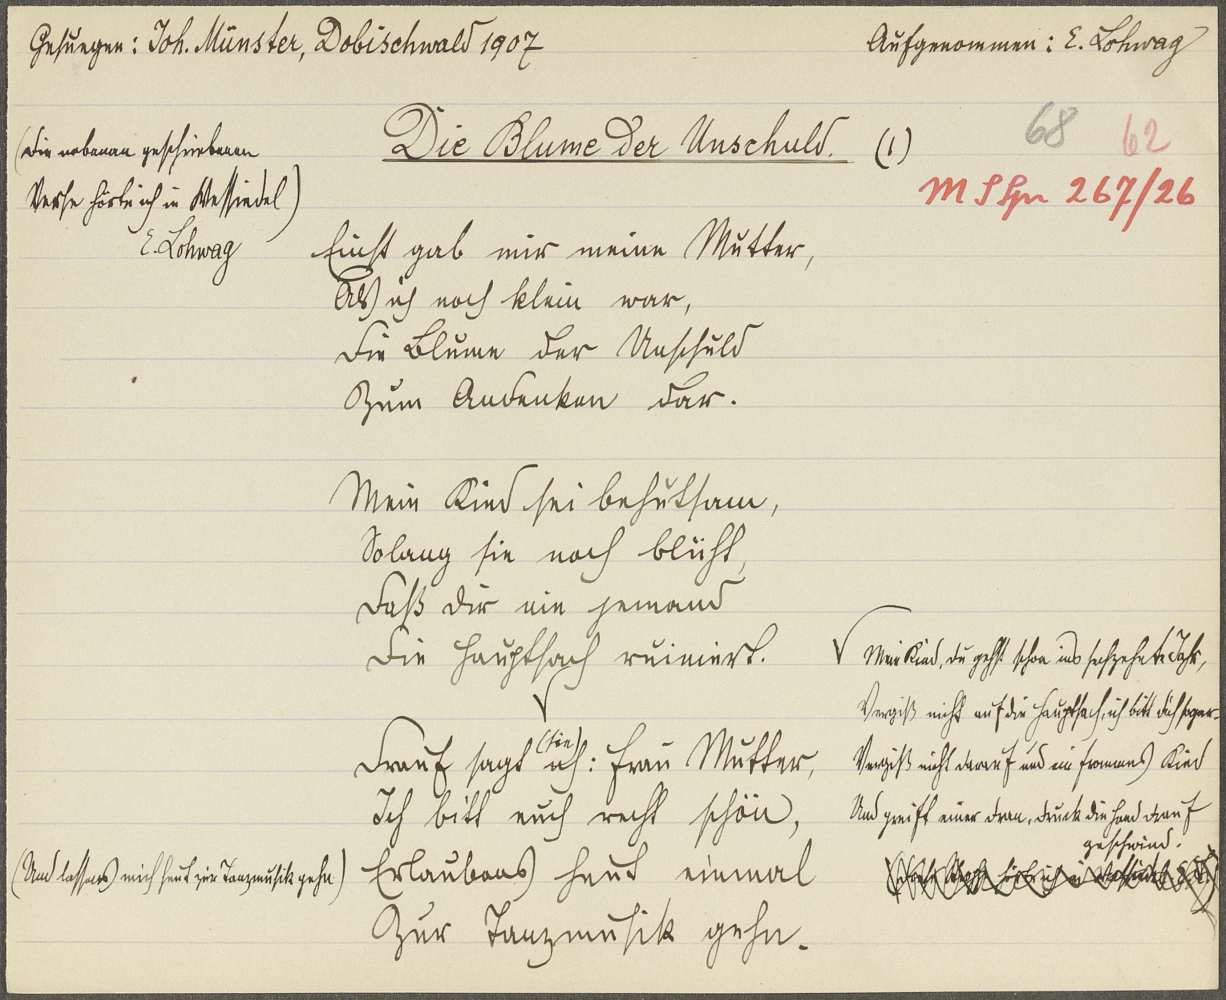 Gesungen: Joh. Münster, Dobischwald 1907
Aufgenommen: E. Lohwag
Die Blume der Unschuld. (1)
68 62
M S Spr 267/26
(Die nebenan geschriebenen
Verse hörte ich in Wessiedel)
E. Lohwag
Einst gab mir meine Mutter,
Als ich noch klein war,
Die Blume der Unschuld
Zum Andenken dar.
Mein Kind sei behutsam,
Solang sie noch blüht,
Daß dir nie jemand
Die Hauptsach ruiniert.
√
√ Mein Kind, du gehst schon ins sechzehnte Jahr,
Vergiß nicht auf die Hauptsach, ich bitt dich sogar.
Vergiß nicht darauf und ein frommes Kind
Und greift einer dran, druck die Hand drauf
geschwind.
Drauf sagt ich: Frau Mutter,
(sie)
Ich bitt euch recht schön,
Erlaubens heut einmal
Zur Tanzmusik gehn.
(Und lassens mich heut zur Tanzmusik gehn)